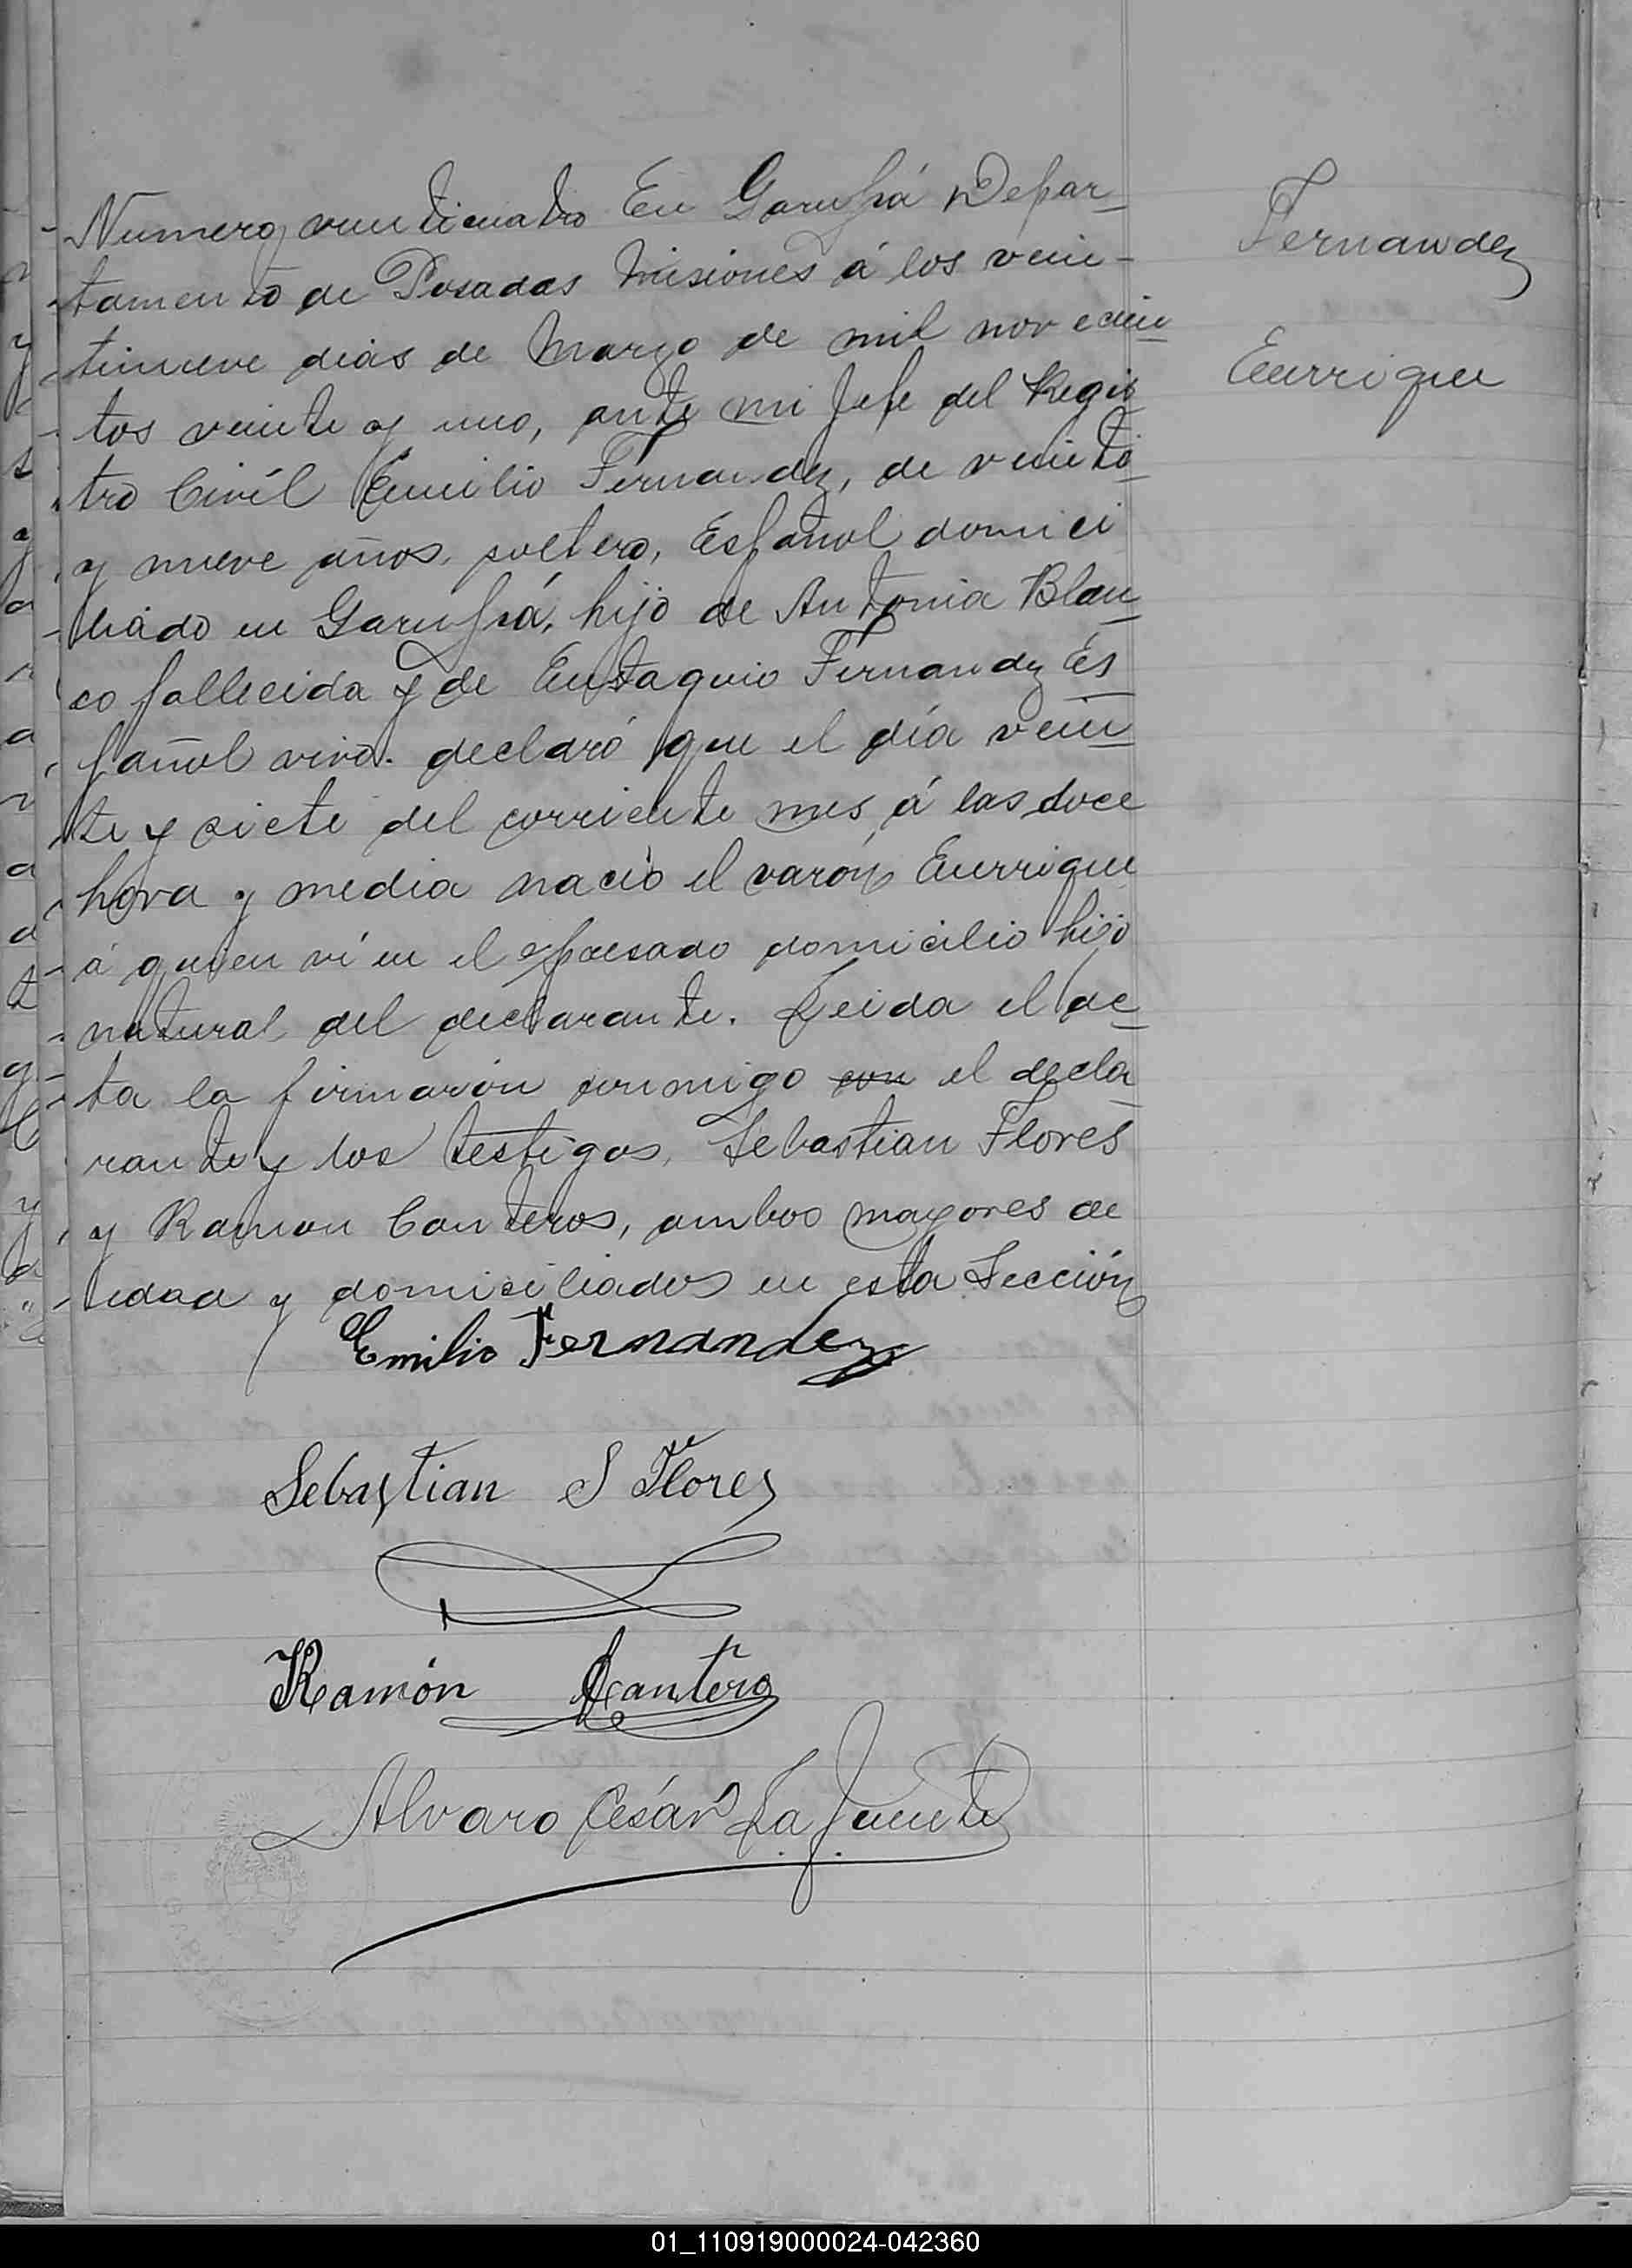 Numero veinticuatro En Garupá Depar-
tamento de Posadas Misiones á los vein-
tinueve dias de Marzo de mil novecien
tos veinte y uno, ante mi Jefe del Regis
tro Civíl Emilio Fernandez, de veinte
y nueve años, soltero, Español domici
liado en Garupá, hijo de Antonia Blan
co fallecida y de Eustaquio Fernandez Es
pañol vivo. declaró que el día vein
te y siete del corriente mes, á las doce
hora y media nació el varón Enrrique
á quien ví en el espresado domicilio hijo
natural del declarante. Leida el ac
ta la firmarón conmigo con el decla
rante y los testigos, Sebastian Flores
y Ramon Canteros, ambos mayores de
edad y domiciliados en esta Sección
Emilio Fernandez
Sebastian S Flores
Ramón Cantero
Alvaro César La Fuente
Fernandez
Enrrique
01_110919000024-042360